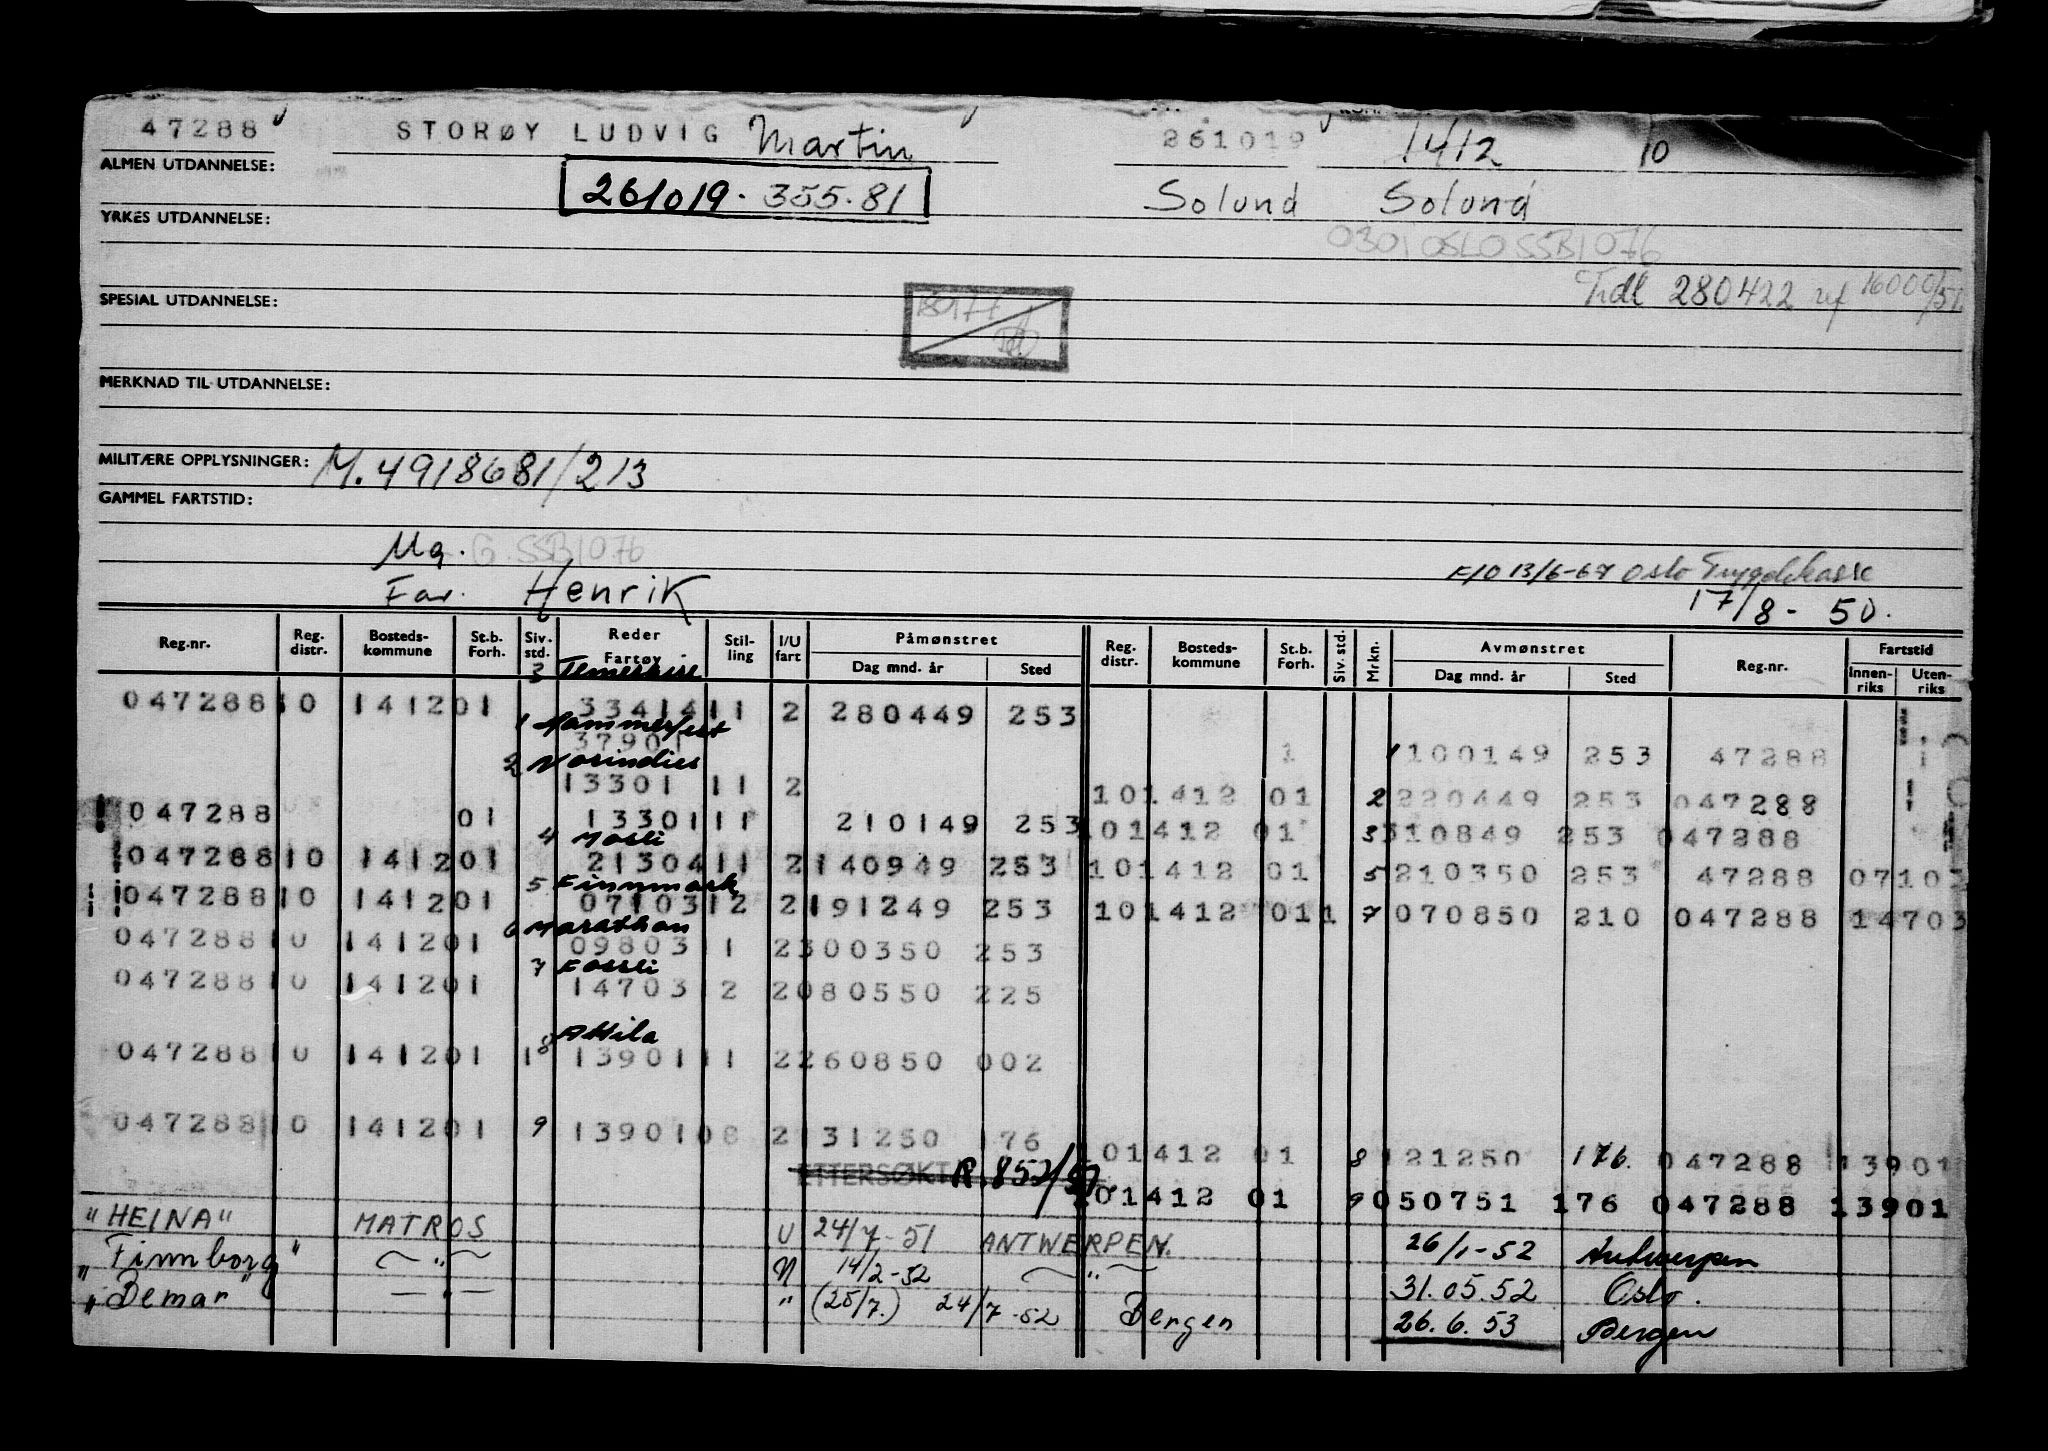 47288 STORØY LUDVIG Martin 261019 1412 10
ALMEN UTDANNELSE:
261019. 355.81 Solund Solund
YRKES UTDANNELSE:
0301 OSLO SSB1076
SPESIAL UTDANNELSE: Tidl 280422
MERKNAD TIL UTDANNELSE:
MILITÆRE OPPLYSNINGER: M. 4918681/213
GAMMEL FARTSTID:
G. SSB1076
F/O 13/6-67 Oslo Trygdekasse
Far. Henrik 17/8-50.
Reg.nr. Reg. distr. Bosteds-kommune St.b. Forh. Siv. std. Reder Fartøy Stil-ling I/U fart Påmønstret Dag mnd. år Sted Reg. distr. Bosteds-kommune St.b. Forh. Siv. std. Mrkn. Avmønstret Dag mnd. år Sted Reg.nr. Fartstid Innen-riks Uten-riks
3
047288 10 1412 01 33414 11 2 280449 253
1 Hammerfest
37901 1 1 100149 253 47288
2
13301 11 2 10 1412 01 2 220449 253 047288
047288 01 13301 11 210149 253 10 1412 01 3 310849 253 047288
4 Mosli
047288 10 1412 01 21304 11 2 140949 253 10 1412 01 5 210350 253 47288 07103
5 Finnmark
047288 10 1412 01 07103 12 2 191249 253 10 1412 01 1 7 070850 210 047288 14703
6 Marathon
047288 10 1412 01 09803 1 2 300350 253
7 Fossli
047288 10 1412 01 14703 2 2 080550 225
8 Attila
047288 10 1412 01 1 13901 11 2 260850 002
047288 10 1412 01 9 13901 08 2 131250 176
10 1412 01 8 121250 176. 047288 13901
ETTERSØKT R. 852/
10 1412 01 9 050751 176 047288 13901
"HEINA" MATROS U 24/7-51 ANTWERPEN. 26/1-52 Antwerpen
"Finnborg" — " — 14/2-52 — " — 31.05.52 Oslo.
"Bemar" — " — " (25/7.) 24/7-52 Bergen 26.6.53 Bergen